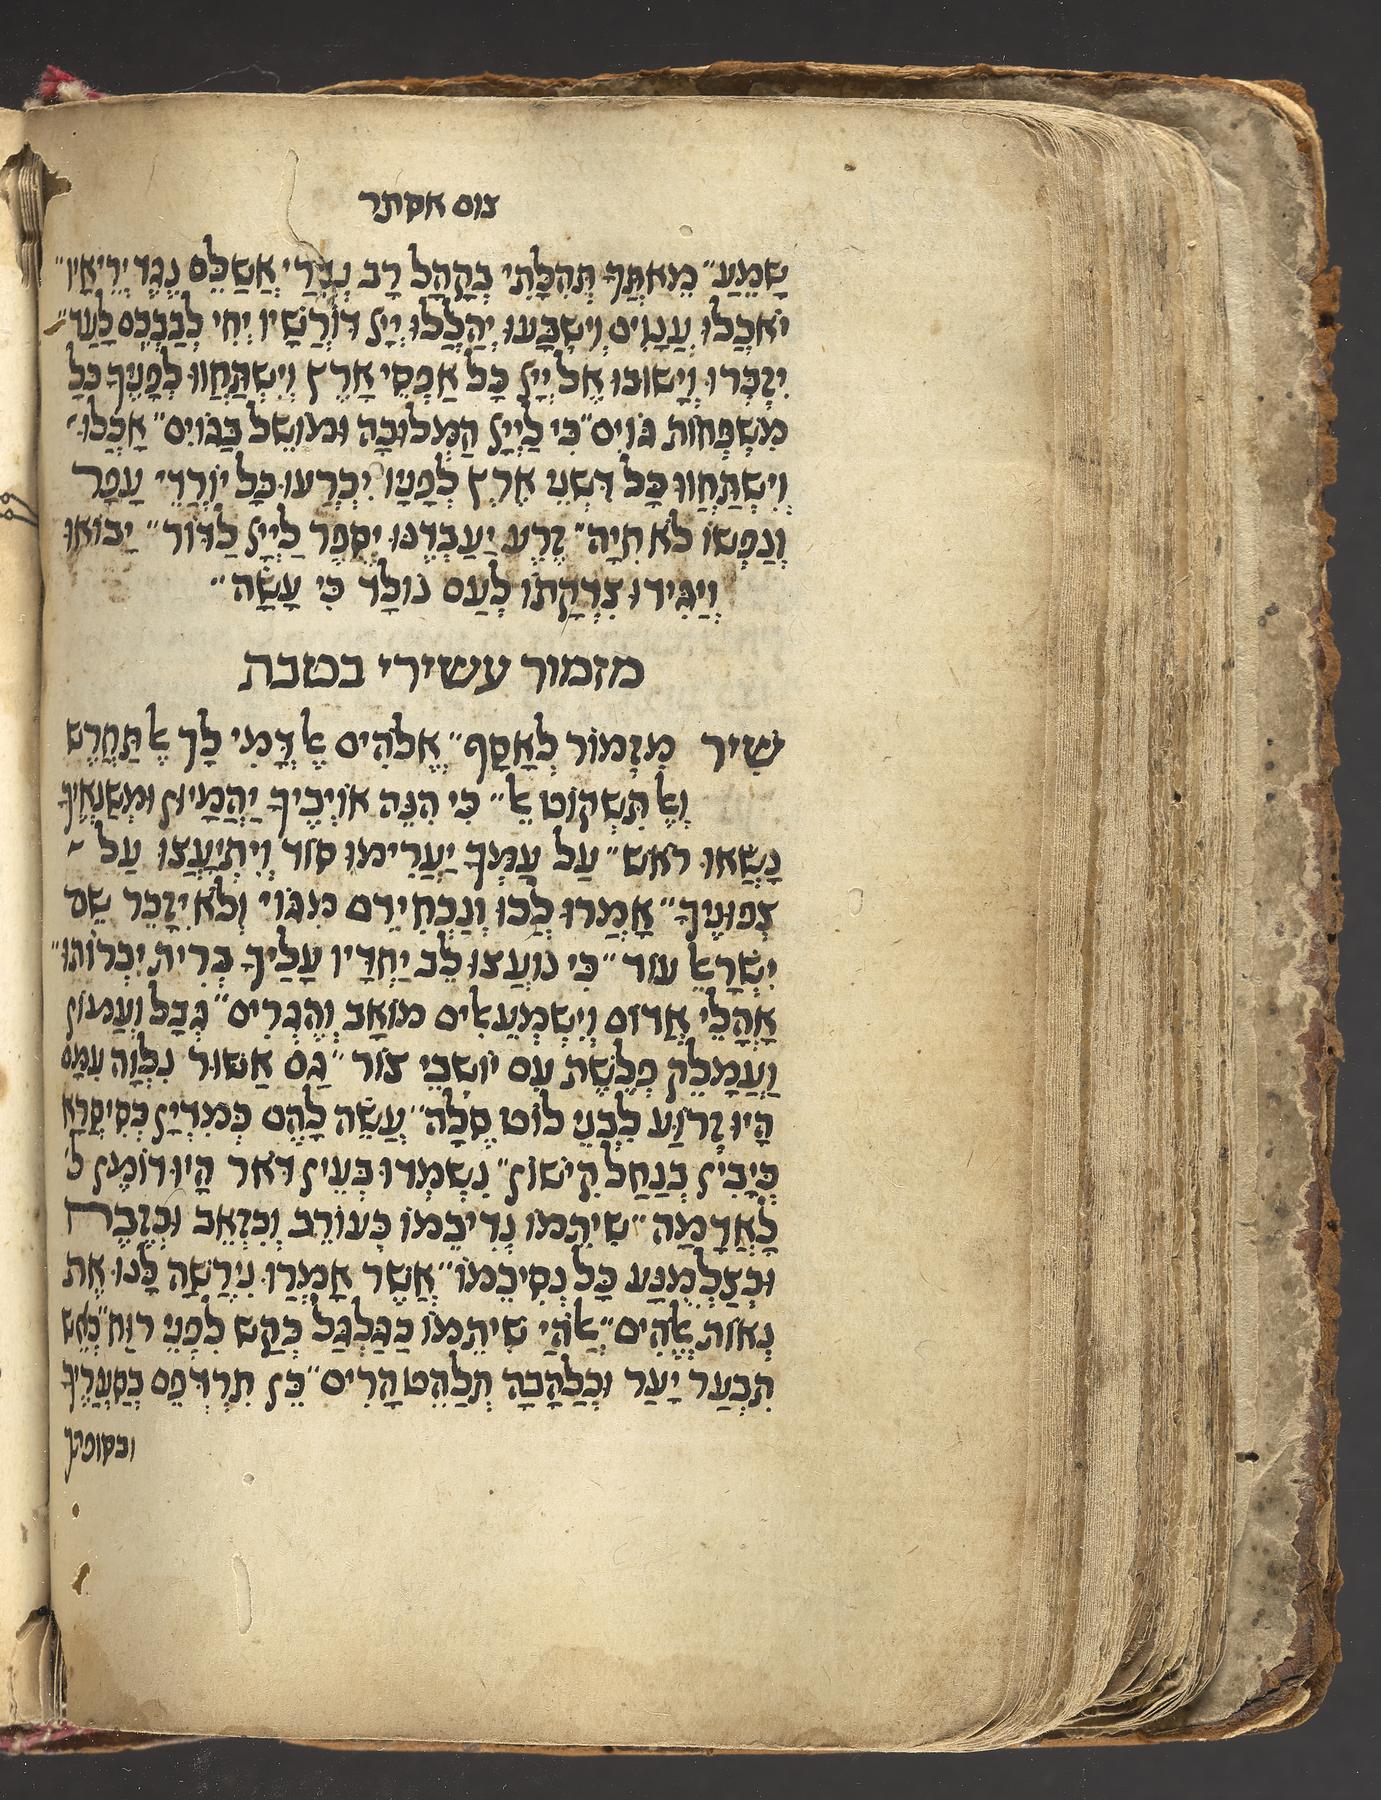 צום אסתר
שָׁמֵעַ״ מֵאִתְּךָ תְּהִלָּתִי בְּקָהָל רָב נְדָרַי אֲשַׁלֵּם נֶגֶד יְרֵיאָיו״
יֹאכְלוּ עֲנָוִים וְיִשְׂבָּעוּ יְהַלְלוּ יְיָ דּוֹרְשָׁיו יְחִי לְבַבְכֶם לָעַד״
יִזְכְּרוּ וְיָשׁוּבוּ אֶל יְיָ כָּל אַפְסֵי אָרֶץ וְיִשְׁתַּחֲווּ לְפָנֶיךָ כָּל
מִשְׁפְּחוֹת גּוֹיִם״ כִּי לַיְיָ הַמְּלוּכָה וּמוֹשֵׁל בַּגּוֹיִם״ אָכְלוּ
וְיִשְׁתַּחֲווּ כָּל דִּשְׁנֵי אֶרֶץ לְפָנָיו יִכְרְעוּ כָּל יוֹרְדֵי עָפָר
וְנַפְשׁוֹ לֹא חִיָּה״ זֶרַע יַעַבְדֶנּוּ יְסֻפַּר לַיְיָ לַדּוֹר״ יָבוֹאוּ
וְיַגִּידוּ צִדְקָתוֹ לְעַם נוֹלָד כִּי עָשָׂה״
מזמור עשירי בטבת
שִׁיר מִזְמוֹר לְאָסָף״ אֱלֹהִים אַל דֳּמִי לָךְ אַל תֶּחֱרַשׁ
וְאַל תִּשְׁקוֹט אֵל״ כִּי הִנֵּה אוֹיְבֶיךָ יֶהֱמָיוּן וּמְשַׂנְאֶיךָ
נָשְׂאוּ רֹאשׁ״ עַל עַמְּךָ יַעֲרִימוּ סוֹד וְיִתְיָעֲצוּ עַל
צְפוּנֶיךָ״ אָמְרוּ לְכוּ וְנַכְחִידֵם מִגּוֹי וְלֹא יִזָּכֵר שֵׁם
יִשְׂרָאֵל עוֹד״ כִּי נוֹעֲצוּ לֵב יַחְדָּיו עָלֶיךָ בְּרִית יִכְרוֹתוּ״
אָהֳלֵי אֱדוֹם וְיִשְׁמְעֵאלִים מוֹאָב וְהַגְרִים״ גְּבָל וְעַמּוֹן
וַעֲמָלֵק פְּלֶשֶׁת עִם יוֹשְׁבֵי צוֹר״ גַּם אַשּׁוּר נִלְוָה עִמָּם
הָיוּ זְרוֹעַ לִבְנֵי לוֹט סֶלָה״ עֲשֵׂה לָהֶם כְּמִדְיָן כְּסִיסְרָא
כְּיָבִין בְּנַחַל קִישׁוֹן״ נִשְׁמְדוּ בְּעֵין דֹּאר הָיוּ דּוֹמֶן ל׳
לָאֲדָמָה״ שִׁיתֵמוֹ נְדִיבֵמוֹ כְּעוֹרֵב וְכִזְאֵב וּכְזֶבַח
וּכְצַלְמֻנָּע כָּל נְסִיכֵמוֹ״ אֲשֶׁר אָמְרוּ נִירְשָׁה לָּנוּ אֵת
נְאוֹת אֱלֹהִים״ אֱלֹהַי שִׁיתֵמוֹ כַגַּלְגַּל כְּקַשׁ לִפְנֵי רוּחַ״ כְּאֵשׁ
תִּבְעַר יָעַר וּכְלֶהָבָה תְּלַהֵט הָרִים״ כֵּן תִּרְדְּפֵם בְּסַעֲרֶיךָ
ובסופתך